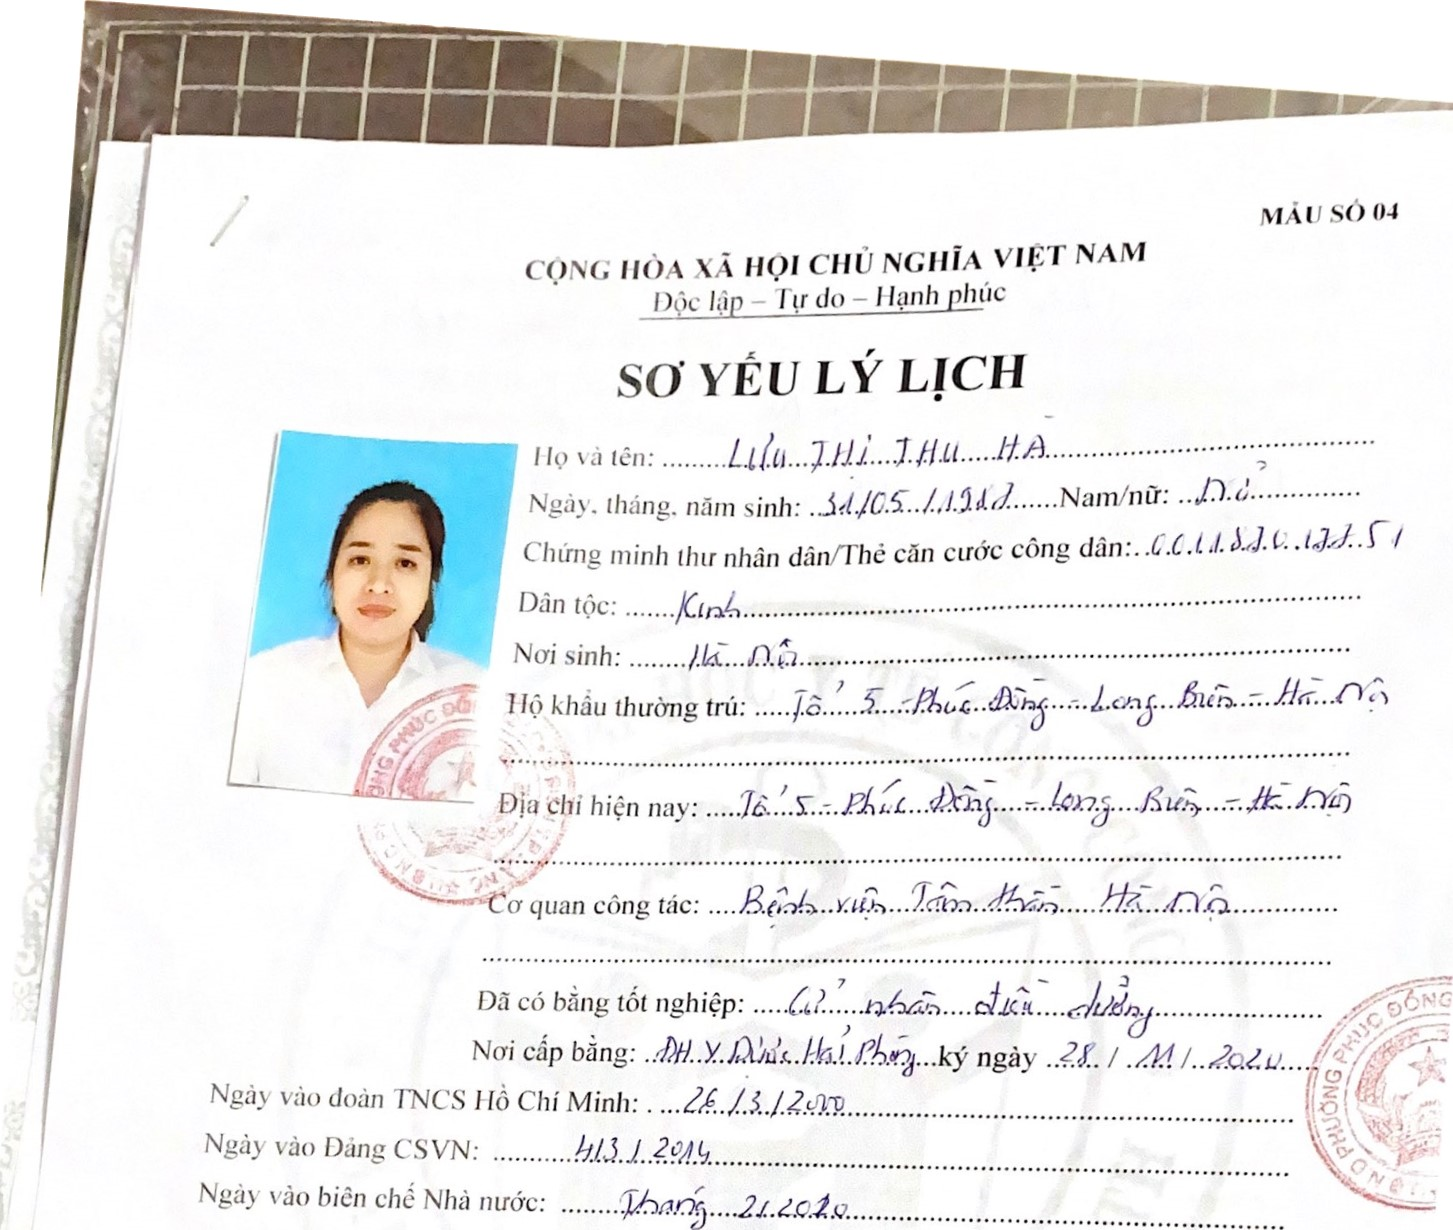 MẪU SỐ 04
CỘNG HÒA XÃ HỘI CHỦ NGHĨA VIỆT NAM
Độc lập – Tự do – Hạnh phúc
SƠ YẾU LÝ LỊCH
Họ và tên: LƯU THỊ THU HÀ
Ngày, tháng, năm sinh: 31/05/1987 Nam/nữ: Nữ
Chứng minh thư nhân dân/Thẻ căn cước công dân:
Dân tộc: Kinh
Nơi sinh: Hà Nội
Hộ khẩu thường trú: Tổ 5 - Phúc Đồng - Long Biên - Hà Nội
Địa chỉ hiện nay: Tổ 5 - Phúc Đồng - Long Biên - Hà Nội
Cơ quan công tác: Bệnh viện Tâm thần Hà Nội
Đã có bằng tốt nghiệp: Cử nhân điều dưỡng
Nơi cấp bằng: ĐH Y Dược Hải Phòng ký ngày 28 / 11 / 2020
Ngày vào đoàn TNCS Hồ Chí Minh: 26/3/2000
Ngày vào Đảng CSVN: 4/3/2014
Ngày vào biên chế Nhà nước: Tháng 2/2020
PHƯỜNG PHÚC ĐỒNG
PHƯỜNG PHÚC ĐỒNG